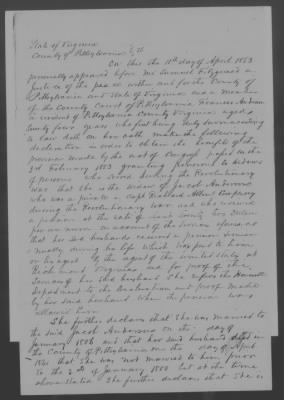 State of Virginia
County of Pittsylvania } ss
On this the 11th day of April 1853
personally appeared before me Samuel Fitzgerald a
Justice of the peace within and for the County of
Pittsylvania and State of Virginia and a Member
of the County Court of Pittsylvania Frances
a resident of Pittsylvania County Virginia aged
Seventy four years who first being duly sworn according
to law doth on her oath make the following
declaration in order to obtain the benefit of the
provision made by the act of Congress passed on the
3rd February 1853 granting pensions to widows
of persons who served during the Revolutionary
War that she is the widow of Jacob
who was a private in Capt Allen Company
during the Revolutionary War and who received
a pension at the rate of two Dollars
per annum on account of the services aforesaid
that her said husband received a pension
during his life which was paid to him
or his agent by the agent of the united states at
Richmond Virginia and for proof of the
of her said husband She refers the
department to the declaration and proof made
by her said husband when the pension was
allowed him
She further declares that She was married to
the said Jacob on the day of
January 1806 and that her said husband died in
the County of Pittsylvania on the day of April
that She was not married to him prior
to the 2nd of January 1800 but at the time
above stated She further declares that She is